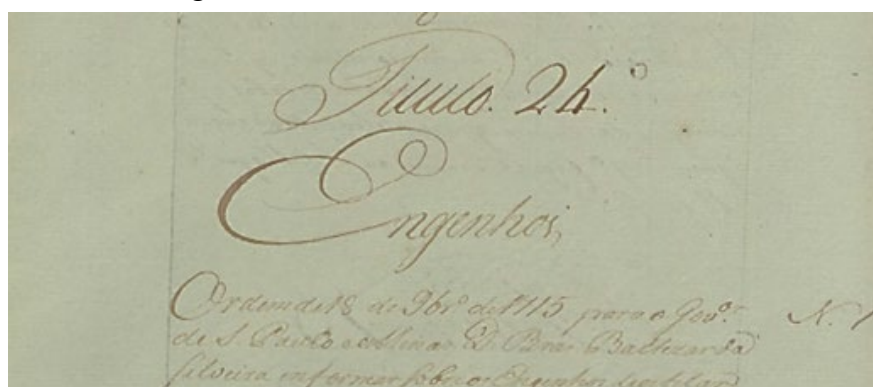 Titulo. 24.º
Engenhos,
Ordem de 18 de 9brº de 1715 para o Govº.
N. 1
de S. Paulo e Minas D. Bras Balthezar da
Silveira informar sobre os Engenhos de